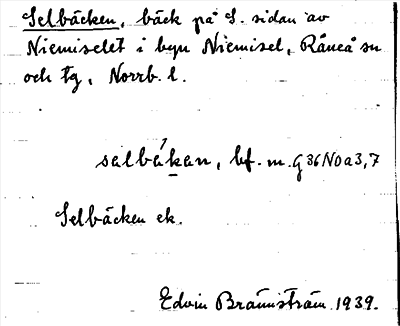 Selbäcken, bäck på S. sidan av
Niemiselet i byn Niemisel, Råneå sn
och tg, Norrb. l.
salbákan, bf. m. G36N0a3,7
Selbäcken ek.
Edvin Brännström 1939.